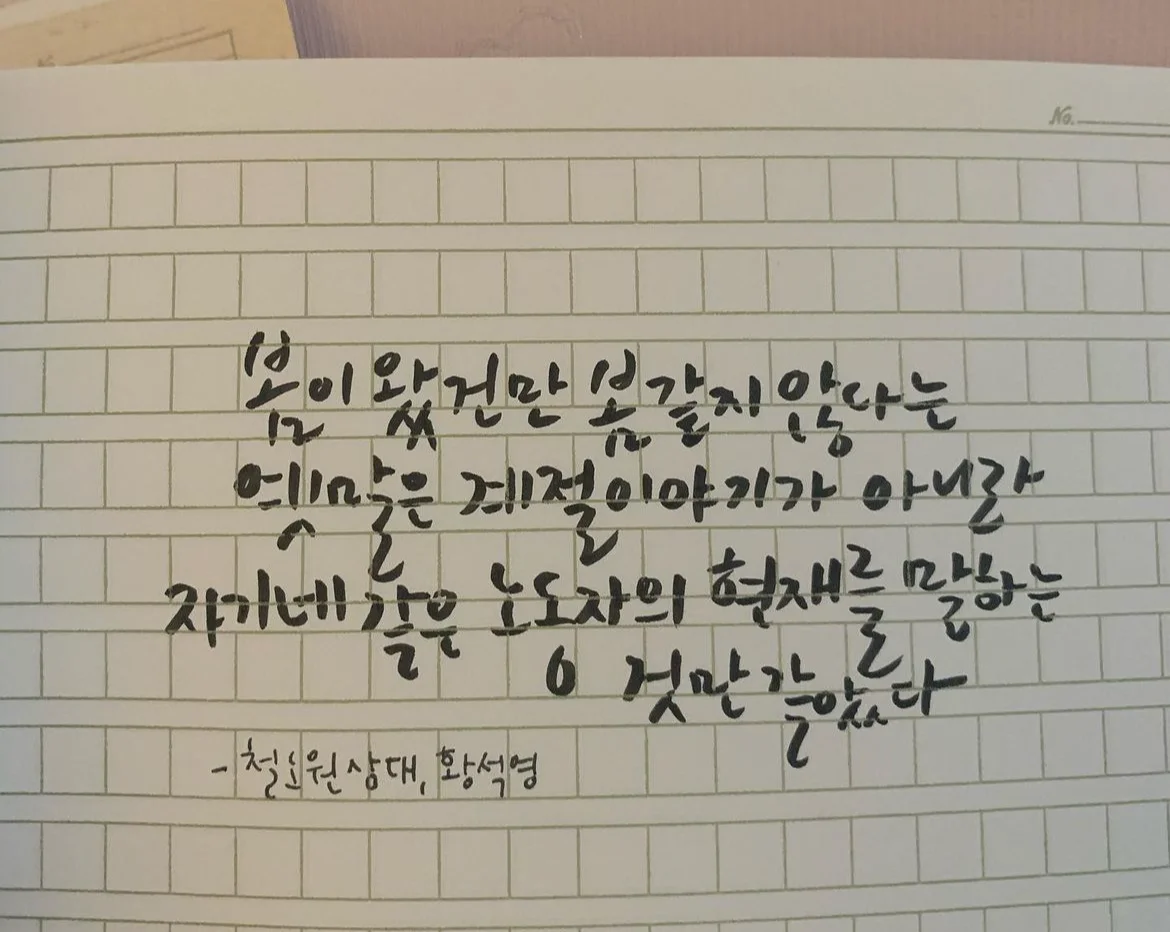 No.
봄이 왔건만 봄 같지 않다는
옛말은 계절이야기가 아니라
자기네 같은 노동자의 현재를 말하는
것만 같았다
- 철도원 삼대, 황석영